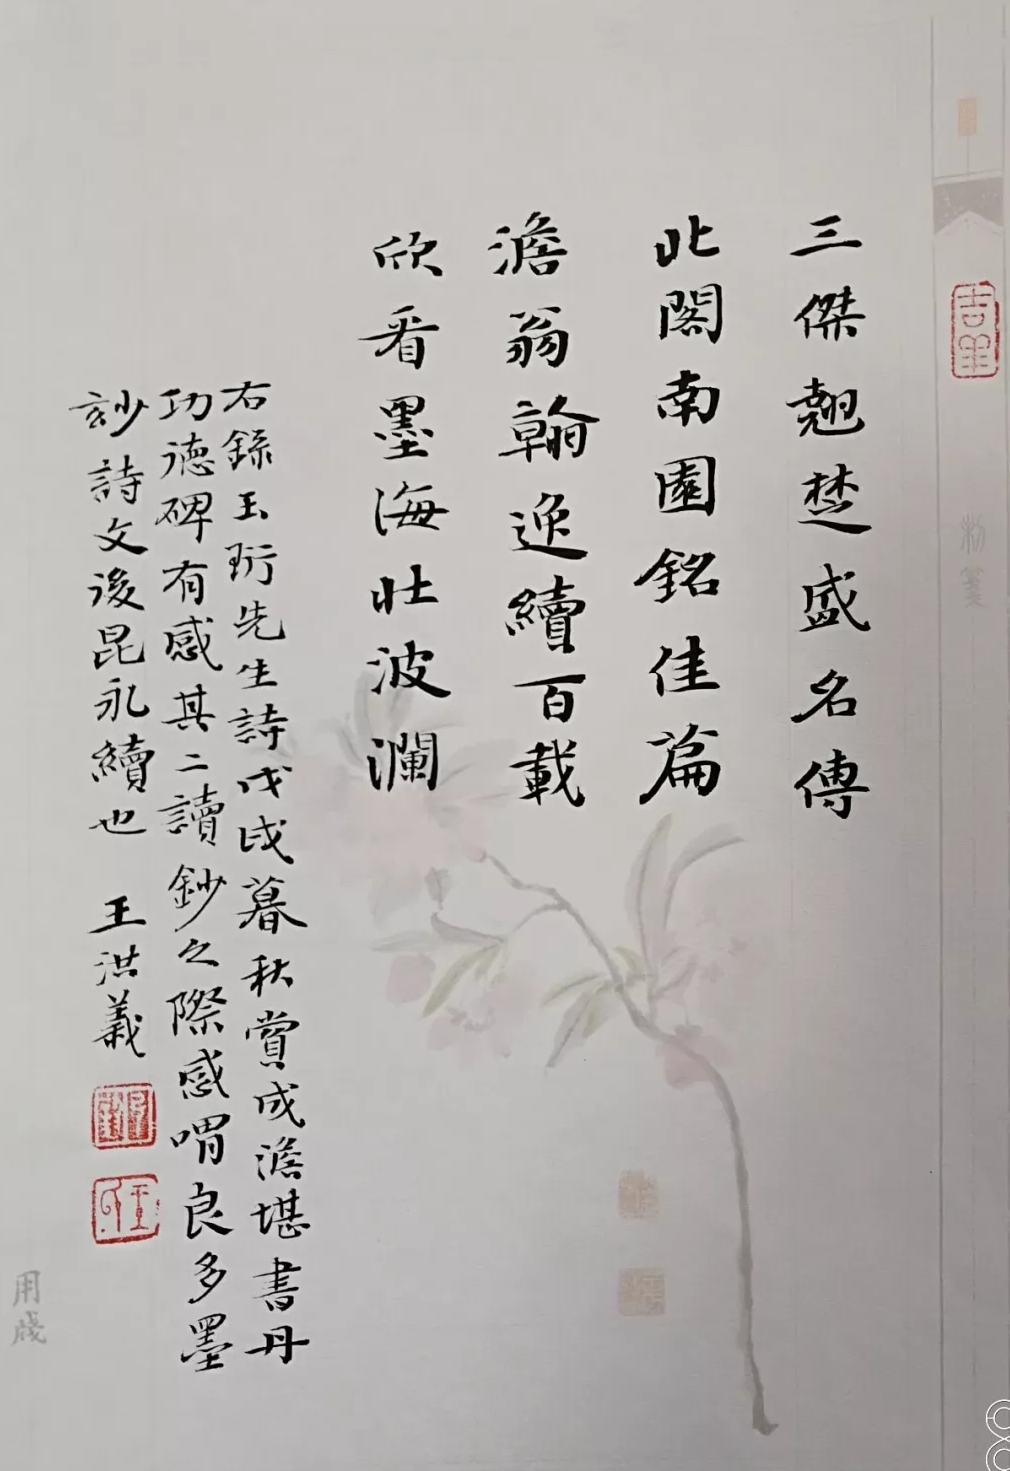 三傑翹楚盛名傳
此閣南園銘佳篇
澹翁翰逸續百載
欣看墨海壯波瀾
右錄玉珩先生詩戊戌暮秋賞成澹堪書丹
功德碑有感其二讀鈔之際感喟良多墨
妙詩文後昆永續也 王洪義
吉羊
用箋